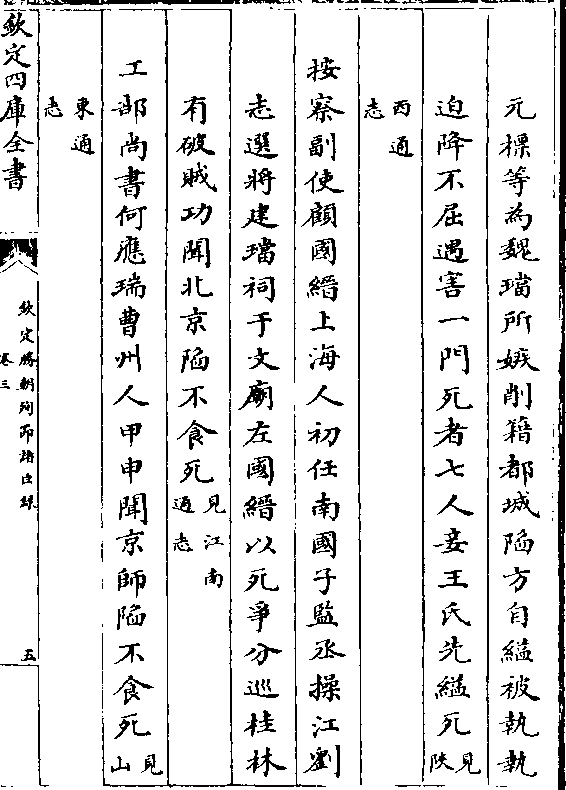 元標等為魏璫所嫉削籍都城陷方自縊被執執
迫降不屈遇害一門死者七人妾王氏先縊死見陜
西通志
按察副使顧國縉上海人初任南國子監丞操江劉
志選將建璫祠于文廟左國縉以死爭分巡桂林
有破賊功聞北京陷不食死見江南通志
工部尚書何應瑞曹州人甲申聞京師陷不食死見山
東通志
欽定四庫全書
欽定勝朝殉節諸臣錄
卷三
五